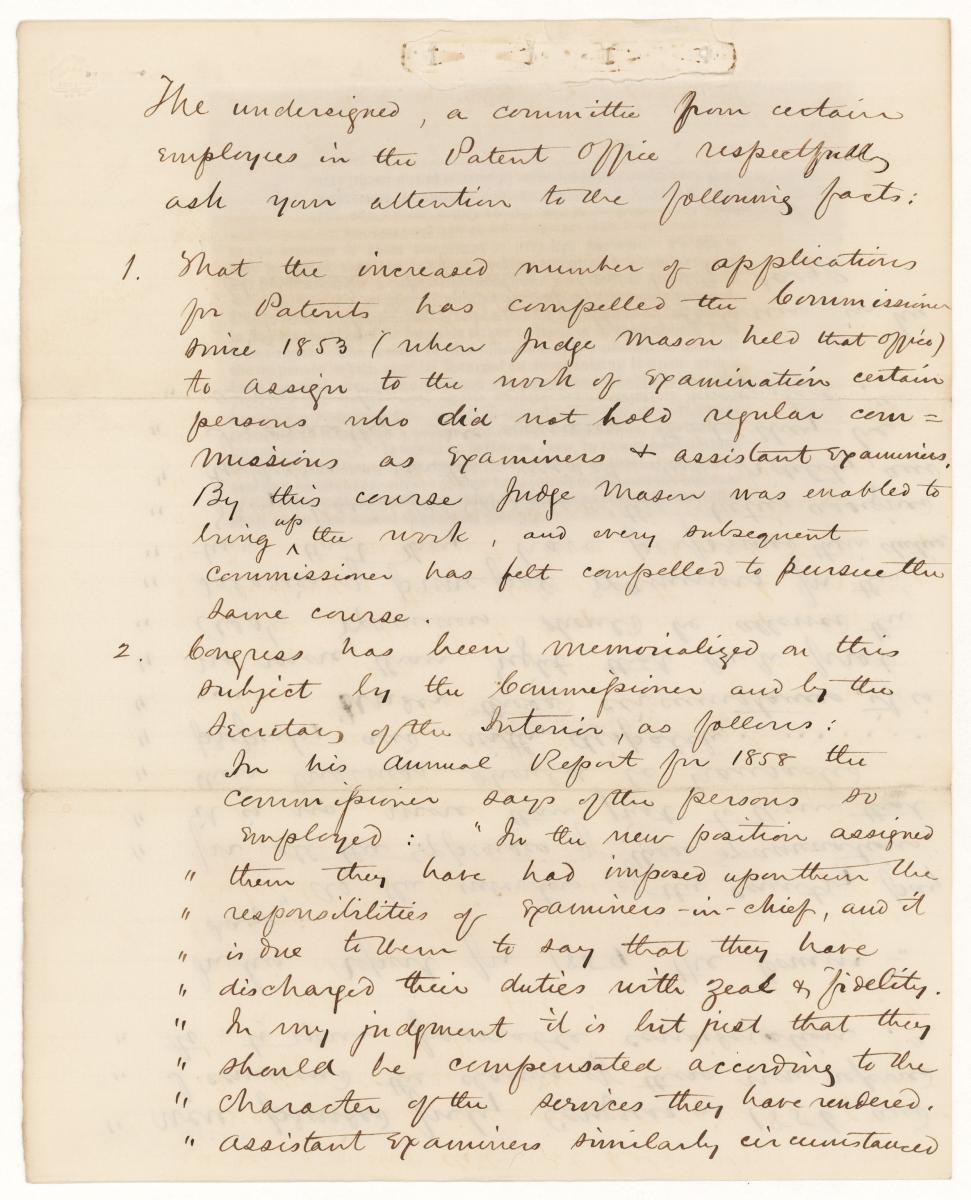 The undersigned, a committee from certain
employees in the Patent Office respectfully
ask your attention to the following facts:
1. That the increased number of applications
for Patents has compelled the Commissioner
since 1853 (when Judge Mason held that office)
to assign to the work of examination certain
persons who did not hold regular com=
missions as Examiners & assistant Examiners.
By this course Judge Mason was enabled to
bring up the work, and every subsequent
commissioner has felt compelled to pursue the
same course.
2. Congress has been memorialized on this
subject by the Commissioner and by the
Secretary of the Interior, as follows:
In his Annual Report for 1858 the
commissioner says of the persons so
employed: "In the new position assigned
" them they have had imposed upon them the
" responsibilities of Examiners-in-chief, and it
" is due to them to say that they have
" discharged their duties with zeal & fidelity.
" In my judgment it is but just that they
" should be compensated according to the
" character of the services they have rendered.
" assistant Examiners similarly circumstanced